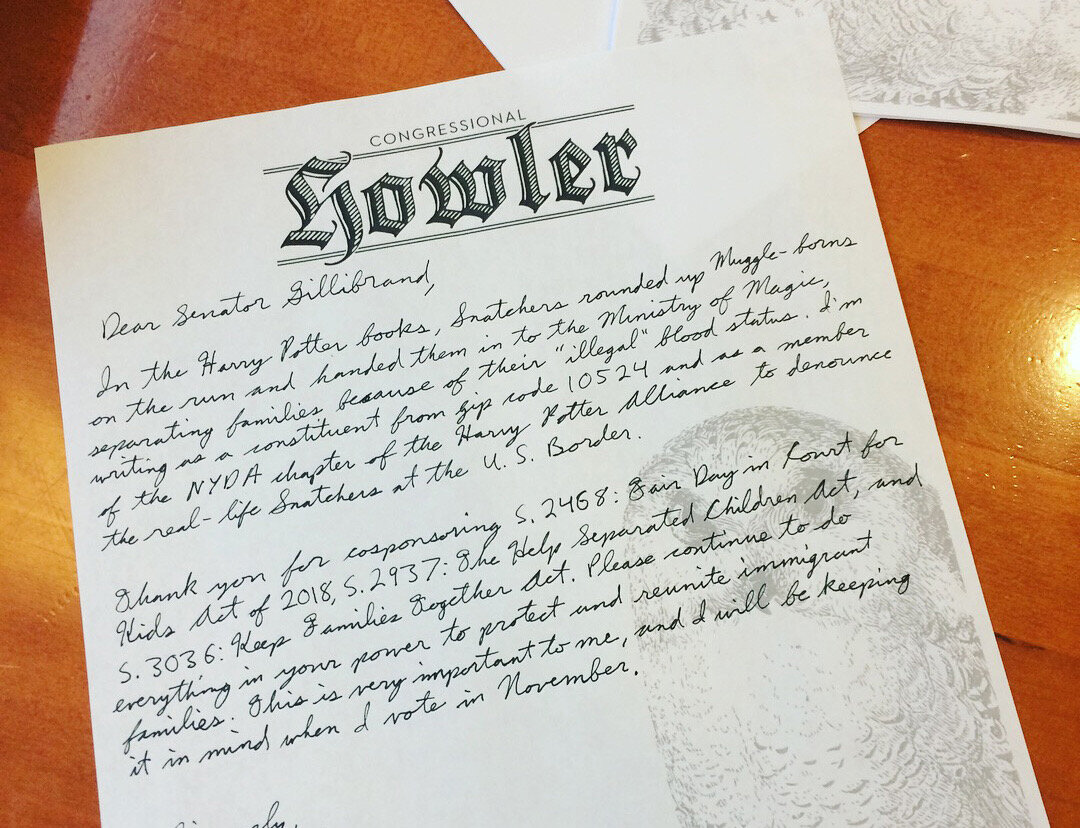 CONGRESSIONAL
Howler
Dear Senator Gillibrand,
In the Harry Potter books, Snatchers rounded up Muggle-borns
on the run and handed them in to the Ministry of Magic,
separating families because of their "illegal" blood status. I'm
writing as a constituent from zip code 10524 and as a member
of the NYDA chapter of the Harry Potter Alliance to denounce
the real-life Snatchers at the U.S. Border.
Thank you for cosponsoring S. 2468: Fair Day in Court for
Kids Act of 2018, S. 2937: The Help Separated Children Act, and
S. 3036: Keep Families Together Act. Please continue to do
everything in your power to protect and reunite immigrant
families. This is very important to me, and I will be keeping
it in mind when I vote in November.